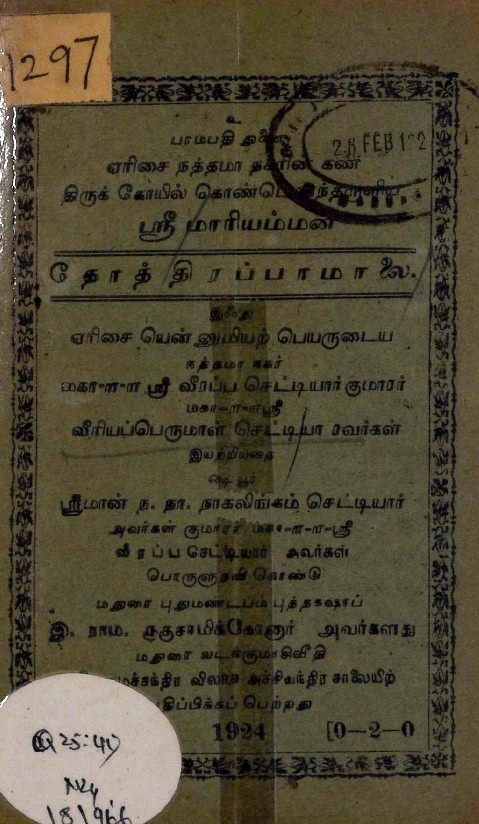 1297
உ
பாமபதி துணை
26 FEB 192
ஏரிசை நத்தமா நகரின் கண்
திருக் கோயில் கொண்டெழுந்தருளிய
ஸ்ரீ மாரியம்மன்
தோத்திரப்பாமாலை.
இஃது
ஏரிசை யென்னுமியற் பெயருடைய
நத்தமா நகர்
மகா-ள-ள ஸ்ரீ வீரப்ப செட்டியார் குமாரர்
மகா-ள-ள-ஸ்ரீ
வீரியப்பெருமாள் செட்டியா ரவர்கள்
இயற்றியதை
ஷை யூர்
ஸ்ரீமான் ந. நா. நாகலிங்கம் செட்டியார்
அவர்கள் குமாரர் மகா-ள-ள-ஸ்ரீ
வீரப்ப செட்டியார் அவர்கள்
பொருளுதவி கொண்டு
மதுரை புதுமண்டபம் புத்தகஷாப்
இ. ராம. குருசாமிக்கோனார் அவர்களது
மதுரை வடக்குமாசிவீதி
ராமச்சந்திர விலாச அச்சியந்திர சாலையிற்
பதிப்பிக்கப் பெற்றது
1924 [0-2-0
Q25:41
N24
181966